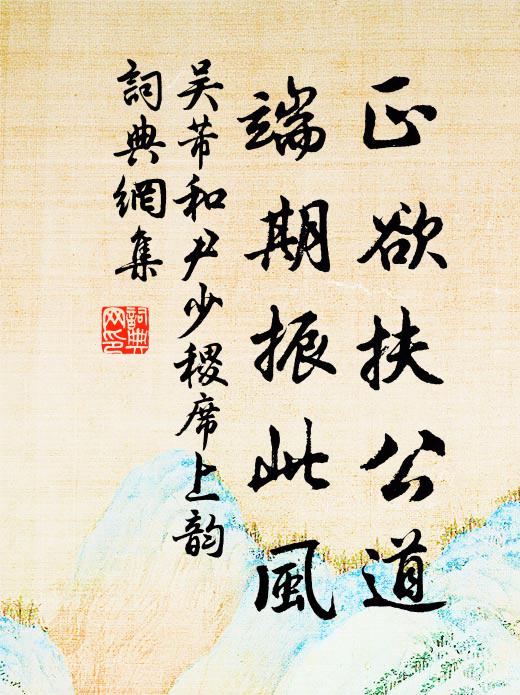 正欲扶公道
端期振此風
吴芾和尹少稷席上韵
詞典網集
詞典
网印